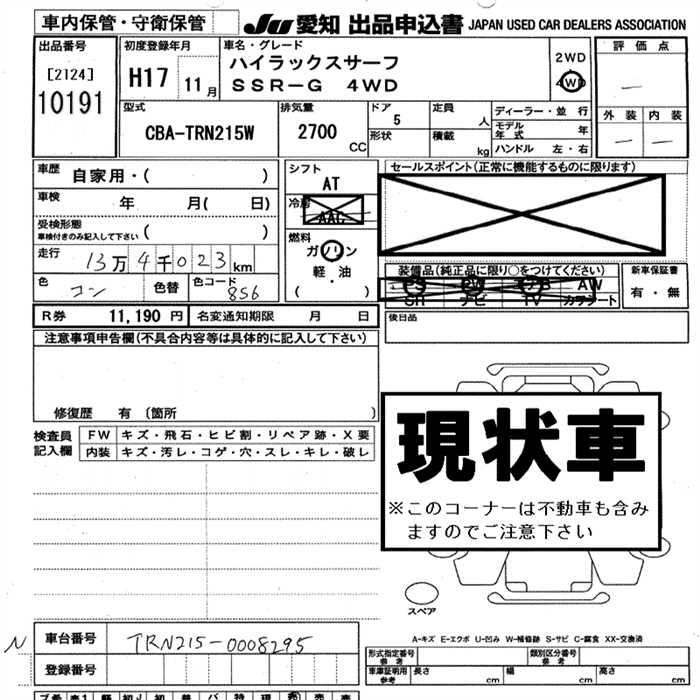 車内保管・守衛保管
JU 愛知 出品申込書 JAPAN USED CAR DEALERS ASSOCIATION
出品番号
[2124]
10191
初度登録年月
H17 11月
車名・グレード
ハイラックスサーフ
SSR-G 4WD
2WD
4WD
評価点
—
外装 内装
— —
型式
CBA-TRN215W
排気量
2700
CC
ドア
5
形状
定員
人
積載
kg
ディーラー・並行
モデル年式 年
ハンドル 左・右
車歴 自家用・( )
車検 年 月( 日)
受検形態
車検付きのみ記入して下さい ( )
走行 13万4千023km
色 コン 色替 色コード 8S6
シフト
AT
冷房
AAC
燃料
ガソリン
軽・油
( )
セールスポイント(正常に機能するものに限ります)
装備品(純正品に限り○をつけてください)
PS PW AB AW
SR ナビ TV カワシート
新車保証書
有・無
R券 11,190円 名変通知期限 月 日
後日品
注意事項申告欄(不具合内容等は具体的に記入して下さい)
修復歴 有 〔箇所 〕
検査員
記入欄
FW キズ・飛石・ヒビ割・リペア跡・X要
内装 キズ・汚レ・コゲ・穴・スレ・キレ・破レ
現状車
※このコーナーは不動車も含み
ますのでご注意下さい
スペア
A-キズ E-エクボ U-凹み W-補修跡 S-サビ C-腐食 XX-交換済
N 車台番号 TRN215-0008295
登録番号
形式指定番号
参考
類別区分番号
参考
車庫証明用
参考
長さ cm 幅 cm 高さ cm